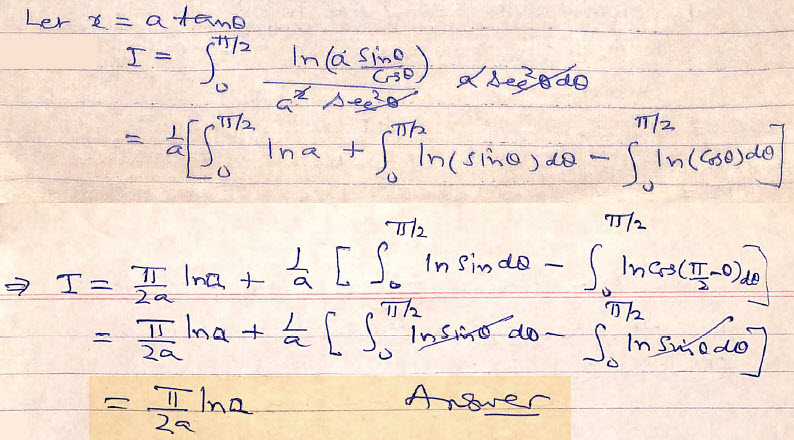 Let x = a tanθ
I = ∫₀^(π/2) ln(a sinθ/cosθ) / (a² sec²θ) a sec²θ dθ
= 1/a [∫₀^(π/2) ln a + ∫₀^(π/2) ln(sinθ) dθ − ∫₀^(π/2) ln(cosθ) dθ]
⇒ I = π/2a ln a + 1/a [∫₀^(π/2) ln sin dθ − ∫₀^(π/2) ln cos(π/2−θ) dθ]
= π/2a ln a + 1/a [∫₀^(π/2) ln sinθ dθ − ∫₀^(π/2) ln sinθ dθ]
= π/2a ln a Answer